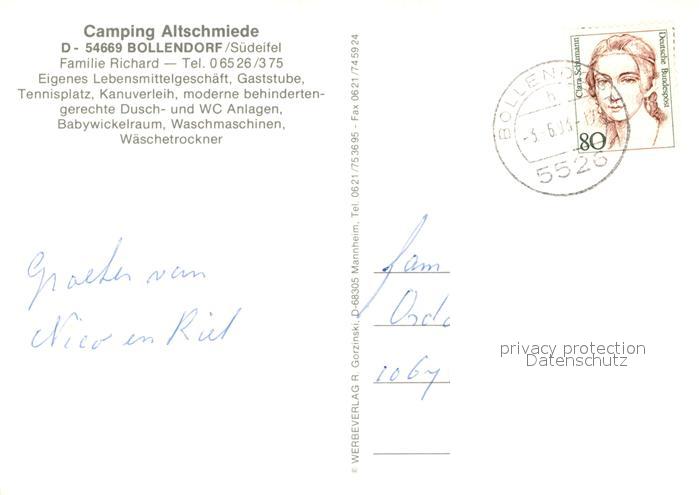 Camping Altschmiede
D - 54669 BOLLENDORF/Südeifel
Familie Richard — Tel. 0 65 26 / 3 75
Eigenes Lebensmittelgeschäft, Gaststube,
Tennisplatz, Kanuverleih, moderne behinderten-
gerechte Dusch- und WC Anlagen,
Babywickelraum, Waschmaschinen,
Wäschetrockner
Groeten van
Nico en Riet
© WERBEVERLAG R. Gorzinski, D-68305 Mannheim, Tel. 0621/753695 - Fax 0621/745924
Clara Schumann
Deutsche Bundespost
80
BOLLENDO
5526
fam
1067
privacy protection
Datenschutz